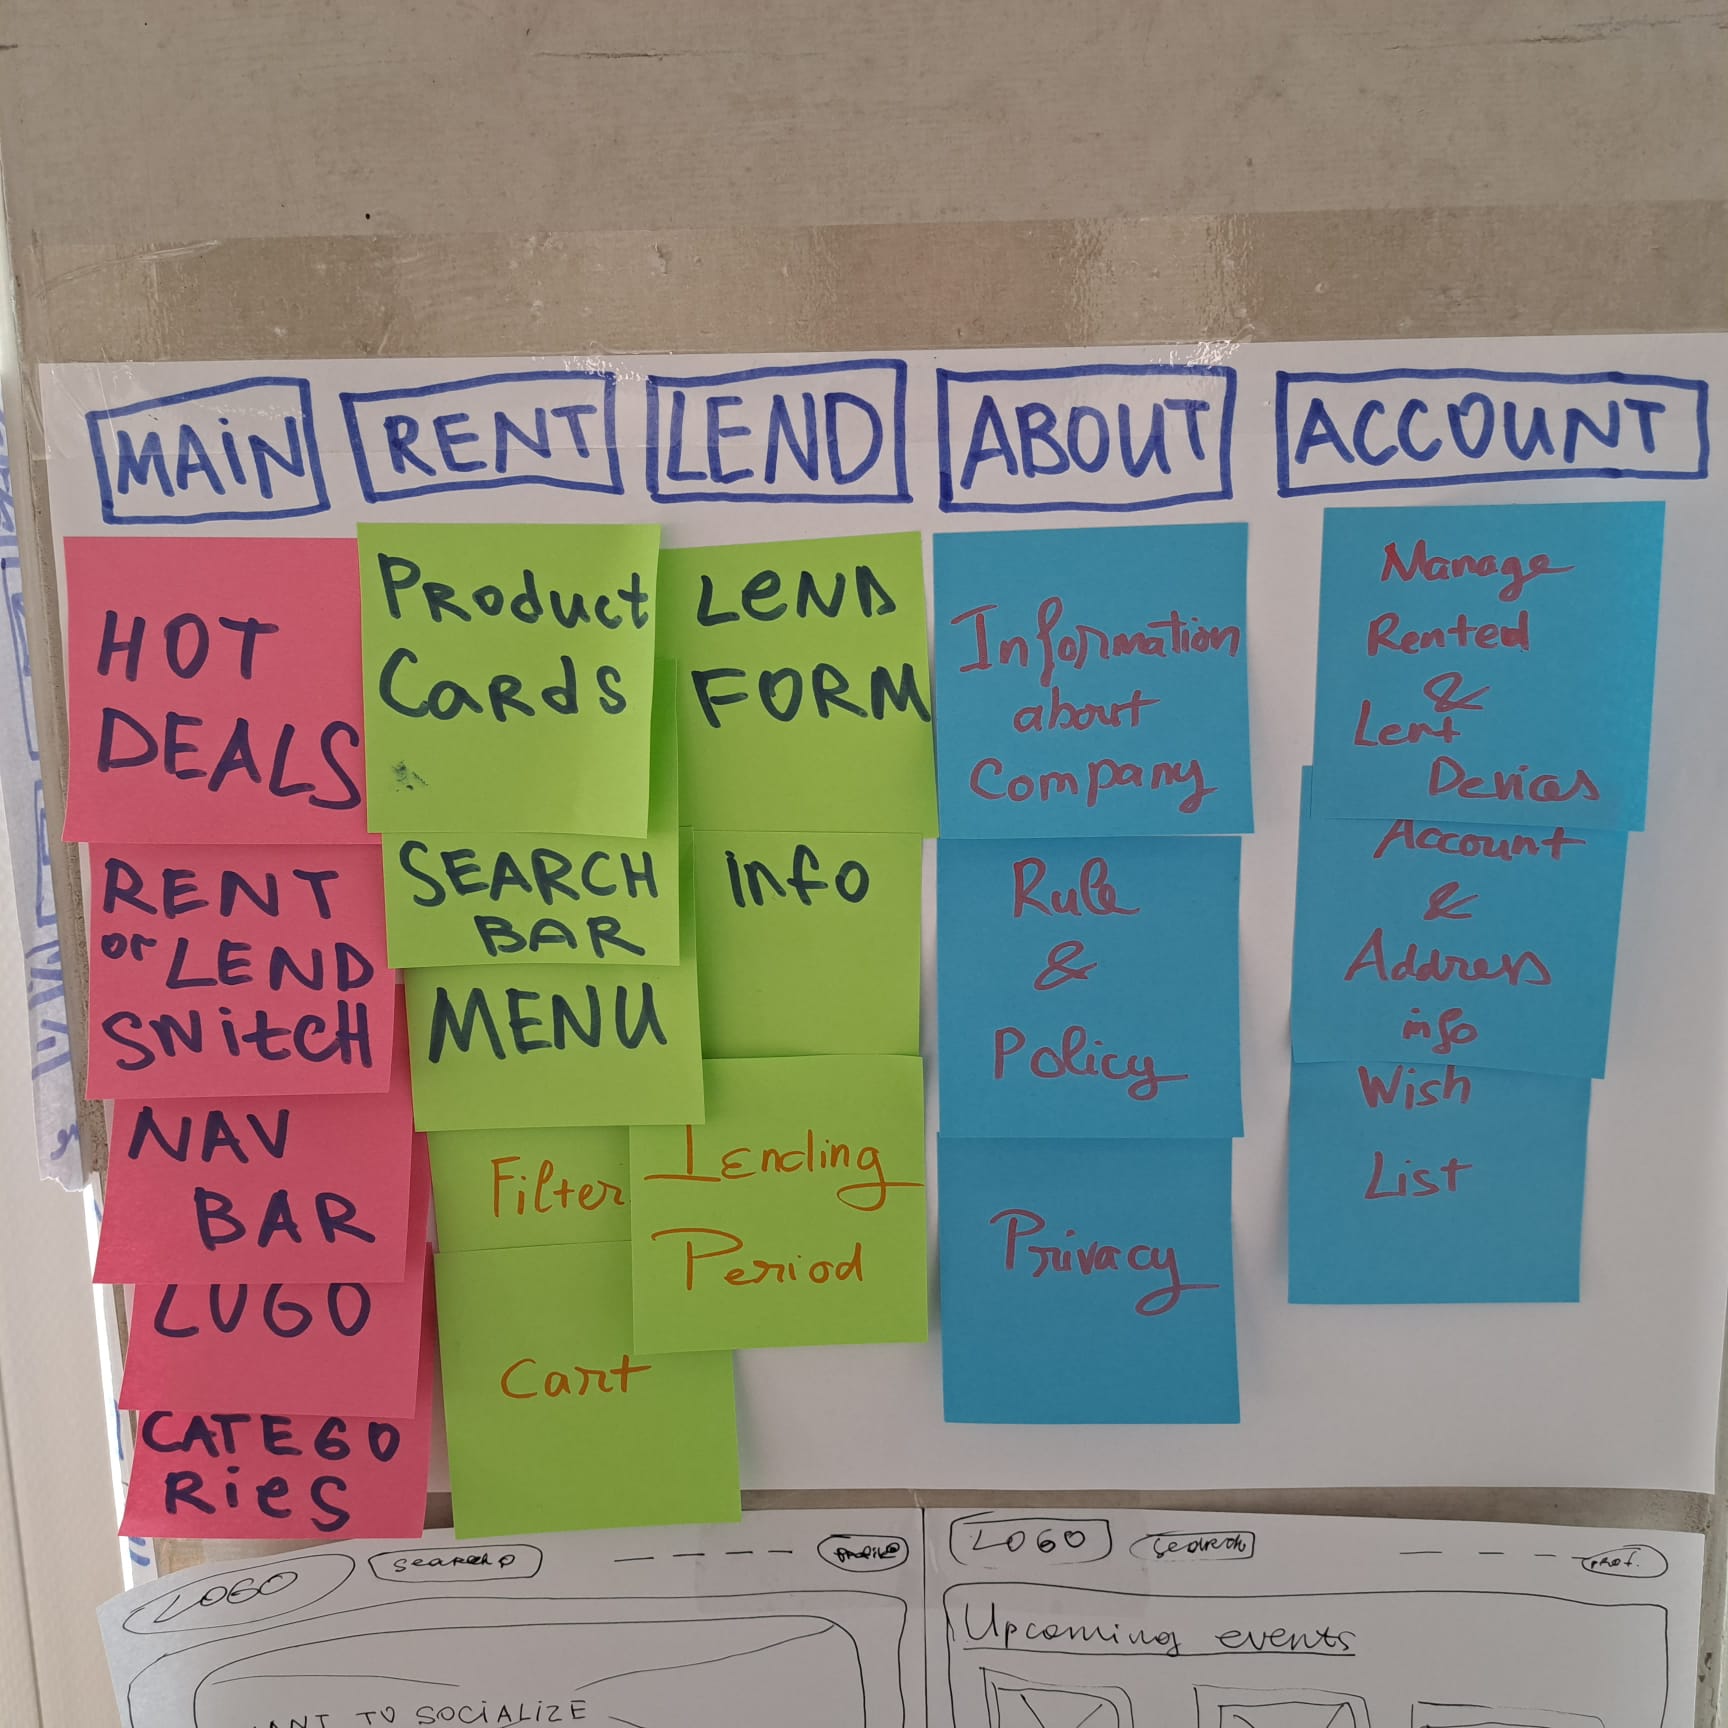 MAiN
RENT
LEND
ABOUT
ACCOUNT
HOT
DEALS
RENT
or LEND
SWitCH
NAV
BAR
LOGO
CATEGO
RieS
Product
Cards
SEARCH
BAR
MENU
Filter
Cart
LeND
FORM
info
Lending
Period
Information
about
Company
Rule
&
Policy
Privacy
Manage
Rented
&
Lent
Devices
Account
&
Address
info
Wish
List
LOGO
search
profile
TO SOCiALiZE
LOGO
search
prof.
Upcoming events